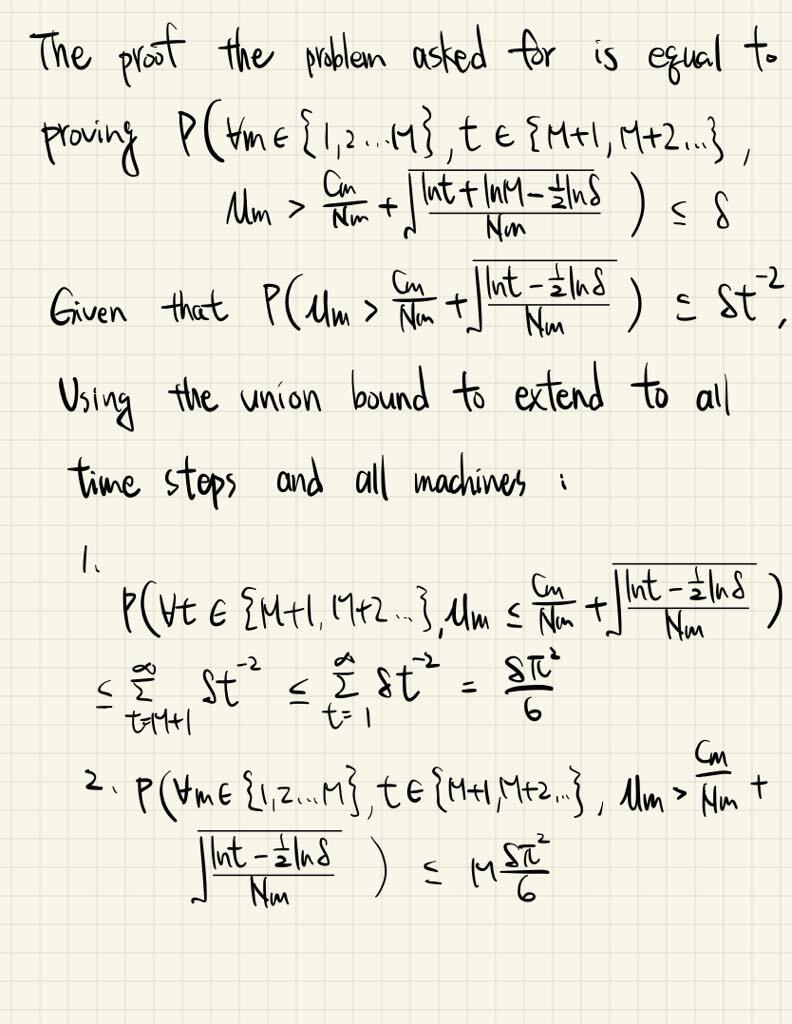 The proof the problem asked for is equal to
proving P(∀m ∈ {1,2...M}, t ∈ {M+1, M+2...},
μm > Cm/Nm + √((lnt + lnM - ½lnδ)/Nm) ) ≤ δ
Given that P(μm > Cm/Nm + √((lnt - ½lnδ)/Nm) ) ≤ δt⁻²,
Using the union bound to extend to all
time steps and all machines :
1.
P(∀t ∈ {M+1, M+2...}, μm ≤ Cm/Nm + √((lnt - ½lnδ)/Nm) )
≤ ∑_{t=M+1}^{∞} δt⁻² ≤ ∑_{t=1}^{∞} δt⁻² = δπ²/6
2. P(∀m ∈ {1,2...M}, t ∈ {M+1, M+2...}, μm > Cm/Nm +
√((lnt - ½lnδ)/Nm) ) ≤ M δπ²/6